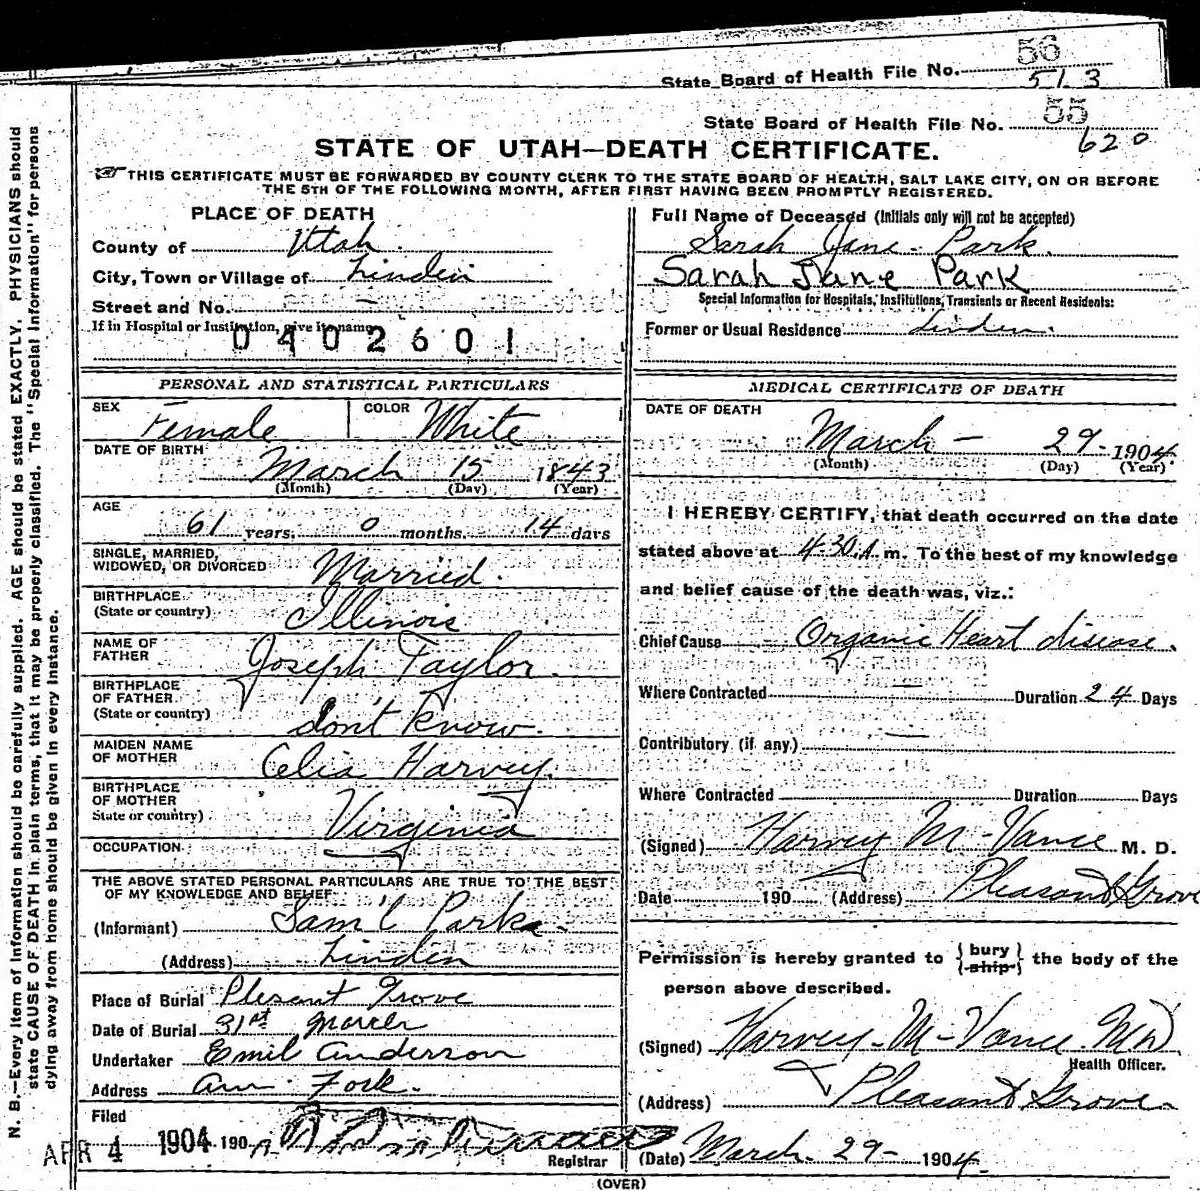 State Board of Health File No. 56
513
State Board of Health File No. 55
620
STATE OF UTAH—DEATH CERTIFICATE.
☞ THIS CERTIFICATE MUST BE FORWARDED BY COUNTY CLERK TO THE STATE BOARD OF HEALTH, SALT LAKE CITY, ON OR BEFORE
THE 5TH OF THE FOLLOWING MONTH, AFTER FIRST HAVING BEEN PROMPTLY REGISTERED.
N. B.—Every item of Information should be carefully supplied. AGE should be stated EXACTLY. PHYSICIANS should
state CAUSE OF DEATH in plain terms, that it may be properly classified. The "Special Information" for persons
dying away from home should be given in every instance.
PLACE OF DEATH
County of Utah
City, Town or Village of Linden
Street and No. —
If in Hospital or Institution, give its name
0402601
PERSONAL AND STATISTICAL PARTICULARS
SEX Female COLOR White
DATE OF BIRTH March 15 1843
(Month) (Day) (Year)
AGE
61 years, 0 months, 14 days
SINGLE, MARRIED,
WIDOWED, OR DIVORCED Married.
BIRTHPLACE
(State or country) Illinois
NAME OF
FATHER Joseph Taylor.
BIRTHPLACE
OF FATHER
(State or country) don't know.
MAIDEN NAME
OF MOTHER Celia Harvey.
BIRTHPLACE
OF MOTHER
State or country) Virginia
OCCUPATION
THE ABOVE STATED PERSONAL PARTICULARS ARE TRUE TO THE BEST
OF MY KNOWLEDGE AND BELIEF
(Informant) Sam'l Parks
(Address) Linden
Place of Burial Plesant Grove
Date of Burial 31st March
Undertaker Emil Anderson
Address Am. Fork.
Filed
APR 4 1904 190
Registrar
Full Name of Deceased (Initials only will not be accepted)
Sarah Jane Park.
Sarah Jane Park
Special Information for Hospitals, Institutions, Transients or Recent Residents:
Former or Usual Residence Linden.
MEDICAL CERTIFICATE OF DEATH
DATE OF DEATH
March — 29 - 1904
(Month) (Day) (Year)
I HEREBY CERTIFY, that death occurred on the date
stated above at 4-30 A. m. To the best of my knowledge
and belief cause of the death was, viz.:
Chief Cause Organic Heart disease.
Where Contracted — Duration 24 Days
Contributory (if any)
Where Contracted Duration Days
(Signed) Harvey M-Vance M. D.
Date 190 (Address) Pleasant Grove
Permission is hereby granted to {bury
ship} the body of the
person above described.
(Signed) Harvey-M-Vance MD
Health Officer.
(Address) Pleasant Grove
(Date) March 29 - 1904
(OVER)